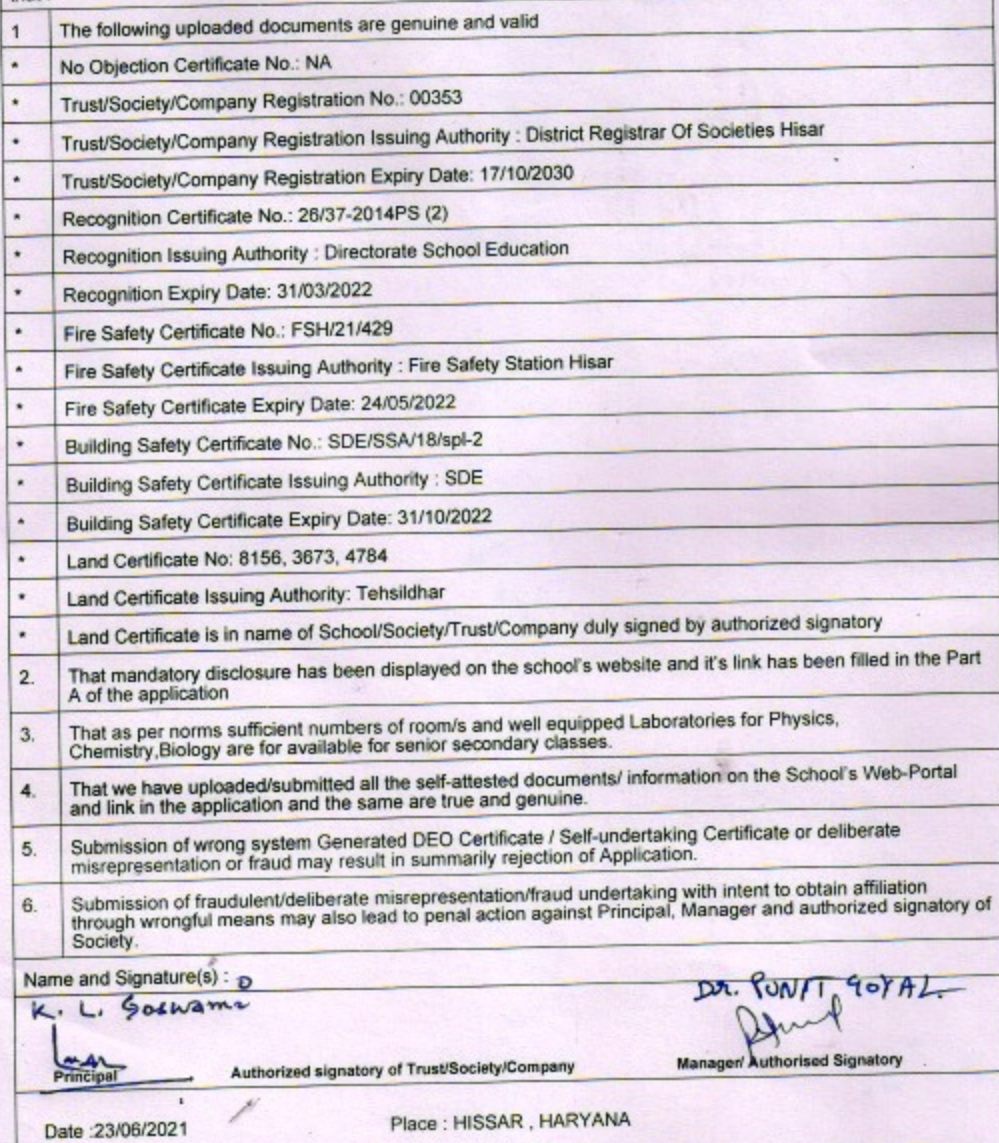 1 The following uploaded documents are genuine and valid
* No Objection Certificate No.: NA
* Trust/Society/Company Registration No.: 00353
* Trust/Society/Company Registration Issuing Authority : District Registrar Of Societies Hisar
* Trust/Society/Company Registration Expiry Date: 17/10/2030
* Recognition Certificate No.: 26/37-2014PS (2)
* Recognition Issuing Authority : Directorate School Education
* Recognition Expiry Date: 31/03/2022
* Fire Safety Certificate No.: FSH/21/429
* Fire Safety Certificate Issuing Authority : Fire Safety Station Hisar
* Fire Safety Certificate Expiry Date: 24/05/2022
* Building Safety Certificate No.: SDE/SSA/18/spl-2
* Building Safety Certificate Issuing Authority : SDE
* Building Safety Certificate Expiry Date: 31/10/2022
* Land Certificate No: 8156, 3673, 4784
* Land Certificate Issuing Authority: Tehsildhar
* Land Certificate is in name of School/Society/Trust/Company duly signed by authorized signatory
2. That mandatory disclosure has been displayed on the school's website and it's link has been filled in the Part
A of the application
3. That as per norms sufficient numbers of room/s and well equipped Laboratories for Physics,
Chemistry,Biology are for available for senior secondary classes.
4. That we have uploaded/submitted all the self-attested documents/ information on the School's Web-Portal
and link in the application and the same are true and genuine.
5. Submission of wrong system Generated DEO Certificate / Self-undertaking Certificate or deliberate
misrepresentation or fraud may result in summarily rejection of Application.
6. Submission of fraudulent/deliberate misrepresentation/fraud undertaking with intent to obtain affiliation
through wrongful means may also lead to penal action against Principal, Manager and authorized signatory of
Society.
Name and Signature(s) :
K. L. Goswami
DR. PUNIT GOYAL
Principal Authorized signatory of Trust/Society/Company Manager/ Authorised Signatory
Date :23/06/2021 Place : HISSAR , HARYANA